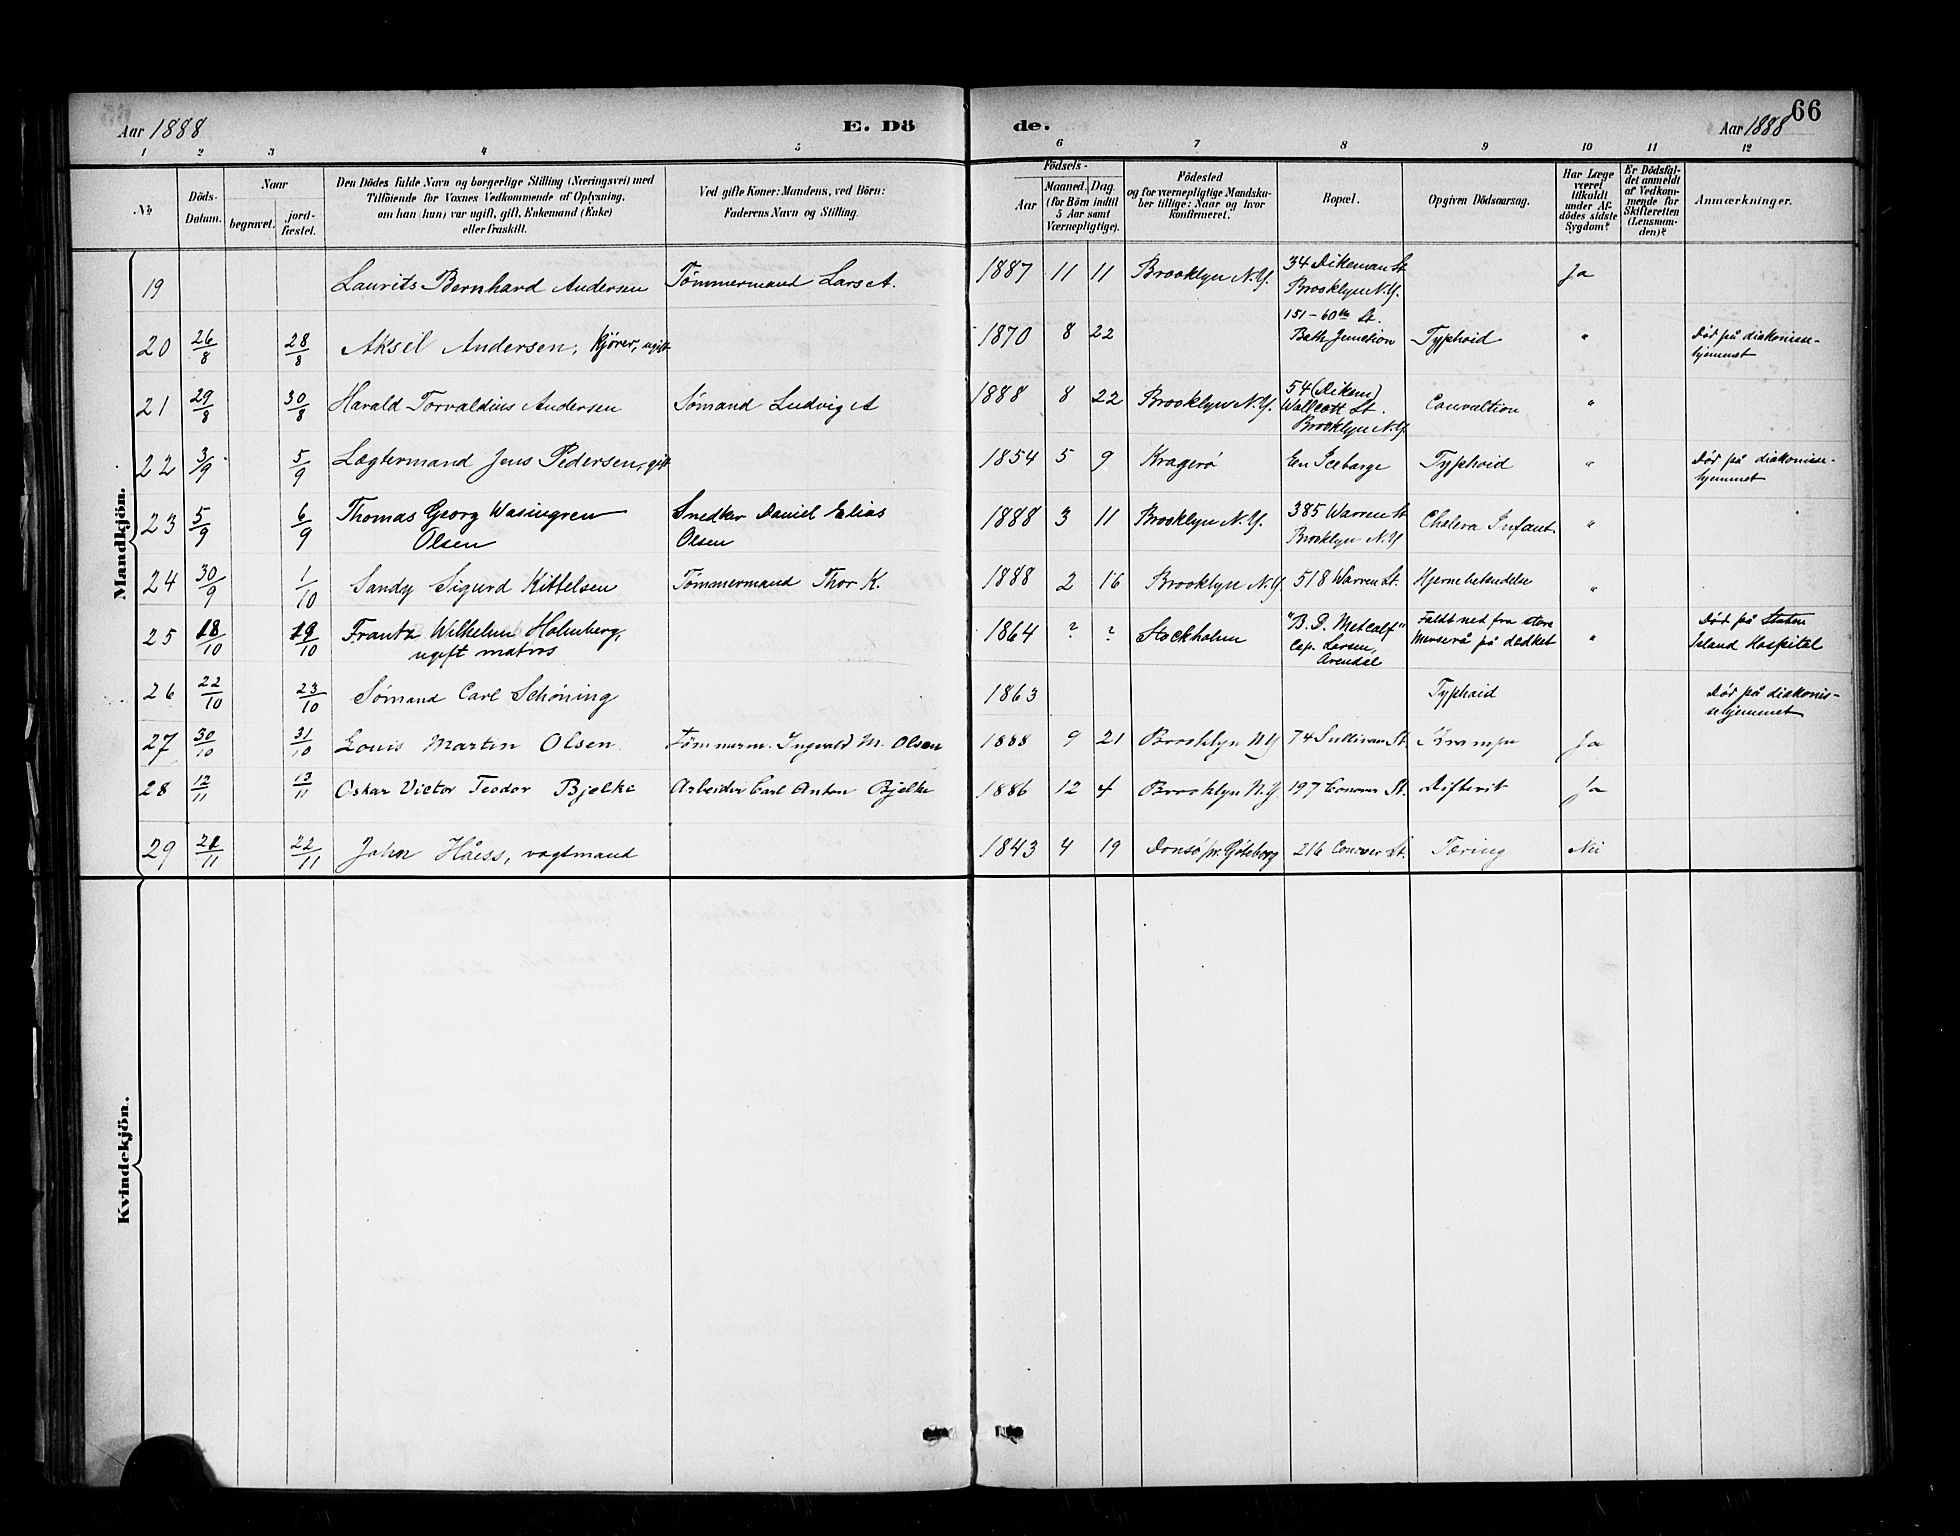 66
Aar 1888
E. Dö
de.
Aar 1888
1 2 3 4 5 6 7 8 9 10 11 12
No
Döds-
Datum.
Naar
begravet.
jord-
fæstet.
Den Dödes fulde Navn og borgerlige Stilling (Næringsvei) med
Tilföiende for Voxnes Vedkommende af Oplysning,
om han (hun) var ugift, gift, Enkemand (Enke)
eller fraskilt.
Ved gifte Koner: Mandens, ved Börn:
Faderens Navn og Stilling.
Födsels-
Aar
Maaned. Dag.
(for Börn indtil
5 Aar samt
Værnepligtige).
Födested
og for værnepligtige Mandska-
ber tillige: Naar og hvor
konfirmeret.
Bopæl.
Opgiven Dödsaarsag.
Har Læge
været
tilkaldt
under Af-
dödes sidste
Sygdom?
Er Dödsfal-
det anmeldt
af Vedkom-
mende for
Skifteretten
(Lensman-
den)?
Anmærkninger.
Mandkjön.
19 Laurits Bernhard Andersen Tømmermand Lars A. 1887 11 11 Brooklyn N.Y. 34 Dikeman St
Brooklyn N.Y. Ja
20 26/8 28/8 Aksel Andersen, Kjører, ugift 1870 8 22 151-60th St.
Bath Junction Typhoid " Død på diakonisse-
hjemmet
21 29/8 30/8 Harald Torvaldius Andersen Sømand Ludvig A 1888 8 22 Brooklyn N.Y. 54 (Dikem)
Wallcott St.
Brooklyn N.Y. Convultion "
22 3/9 5/9 Lægtermand Jens Pedersen, gift 1854 5 9 Kragerø Een Icebarge Typhoid " Død på diakonisse-
hjemmet
23 5/9 6/9 Thomas Georg Wasingren
Olsen Snedker Daniel Elias
Olsen 1888 3 11 Brooklyn N.Y. 385 Warren St
Brooklyn N.Y Cholera Infant. "
24 30/9 1/10 Sandy Sigurd Kittelsen Tømmermand Thor K. 1888 2 16 Brooklyn N.Y. 518 Warren St. Hjernebetendelse "
25 18/10 19/10 Frantz Wilhelm Holmberg,
ugift matros 1864 ? ? Stockholm "B. D. Metcalf"
Cap. Larsen,
Arendal Faldt ned fra store
Merserå på dækket " Død på Staten
Island Hospital
26 22/10 23/10 Sømand Carl Schöning 1863 Typhoid Død på diakonis-
sehjemmet
27 30/10 31/10 Louis Martin Olsen Tømmerm. Ingvald M. Olsen 1888 9 21 Brooklyn N.Y 74 Sullivan St. Krampe Ja
28 12/11 13/11 Oskar Victor Teodor Bjelke Arbeider Carl Anton Bjelke 1886 12 4 Brooklyn N.Y. 197 Conover St. Difterit Ja
29 21/11 22/11 John Håess, vagtmand 1843 4 19 Donsö pr. Göteborg 216 Conover St. Tæring Nei
Kvindekjön.